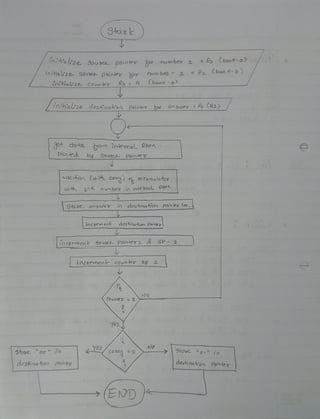 Start
initialize source pointer for number 1 = R0 (bank-0)
initialize source pointer for number - 2 = R1 (bank-0)
initialize counter R3 = 4 (bank-0)
initialize destination pointer for answer = R0
get data from internal RAM
pointed by source pointer
addition (with carry) of accumulator
with 2nd number in internal RAM
Store answer in destination pointer
increment destination pointer
increment source pointer 1 &
increment counter by 1
Is
counter = 0
?
No
Yes
is
carry = 0
?
Yes
No
Store "00" in
destination pointer
Store "01" in
destination pointer
END